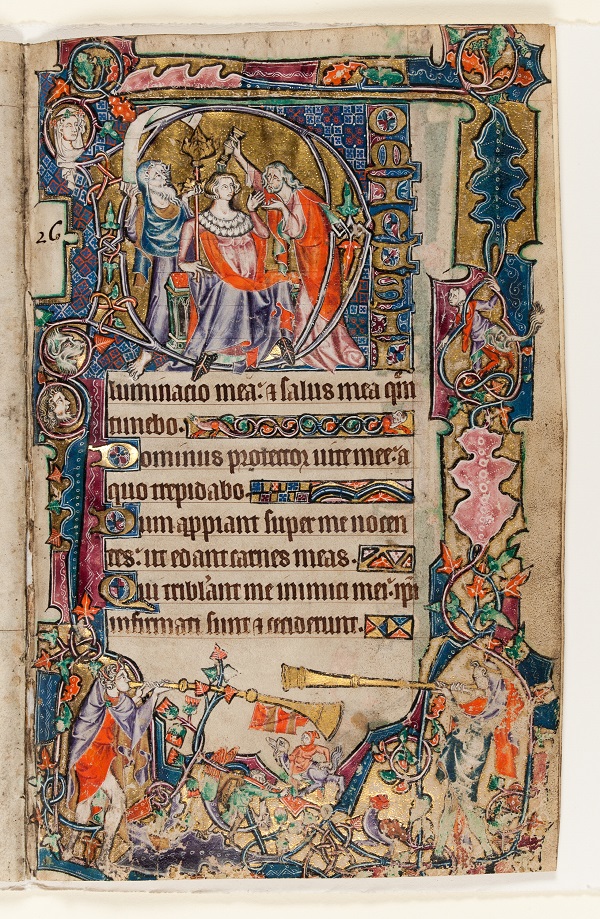 26
D
ominus
luminacio mea: ⁊ salus mea que͂
timebo.
Dominus protector uite mee: a
quo trepidabo.
Dum appiant super me nocen
tes: ut edant carnes meas.
Qui tribl'ant me inimici mei: ip̄i
infirmati sunt ⁊ ceciderunt.